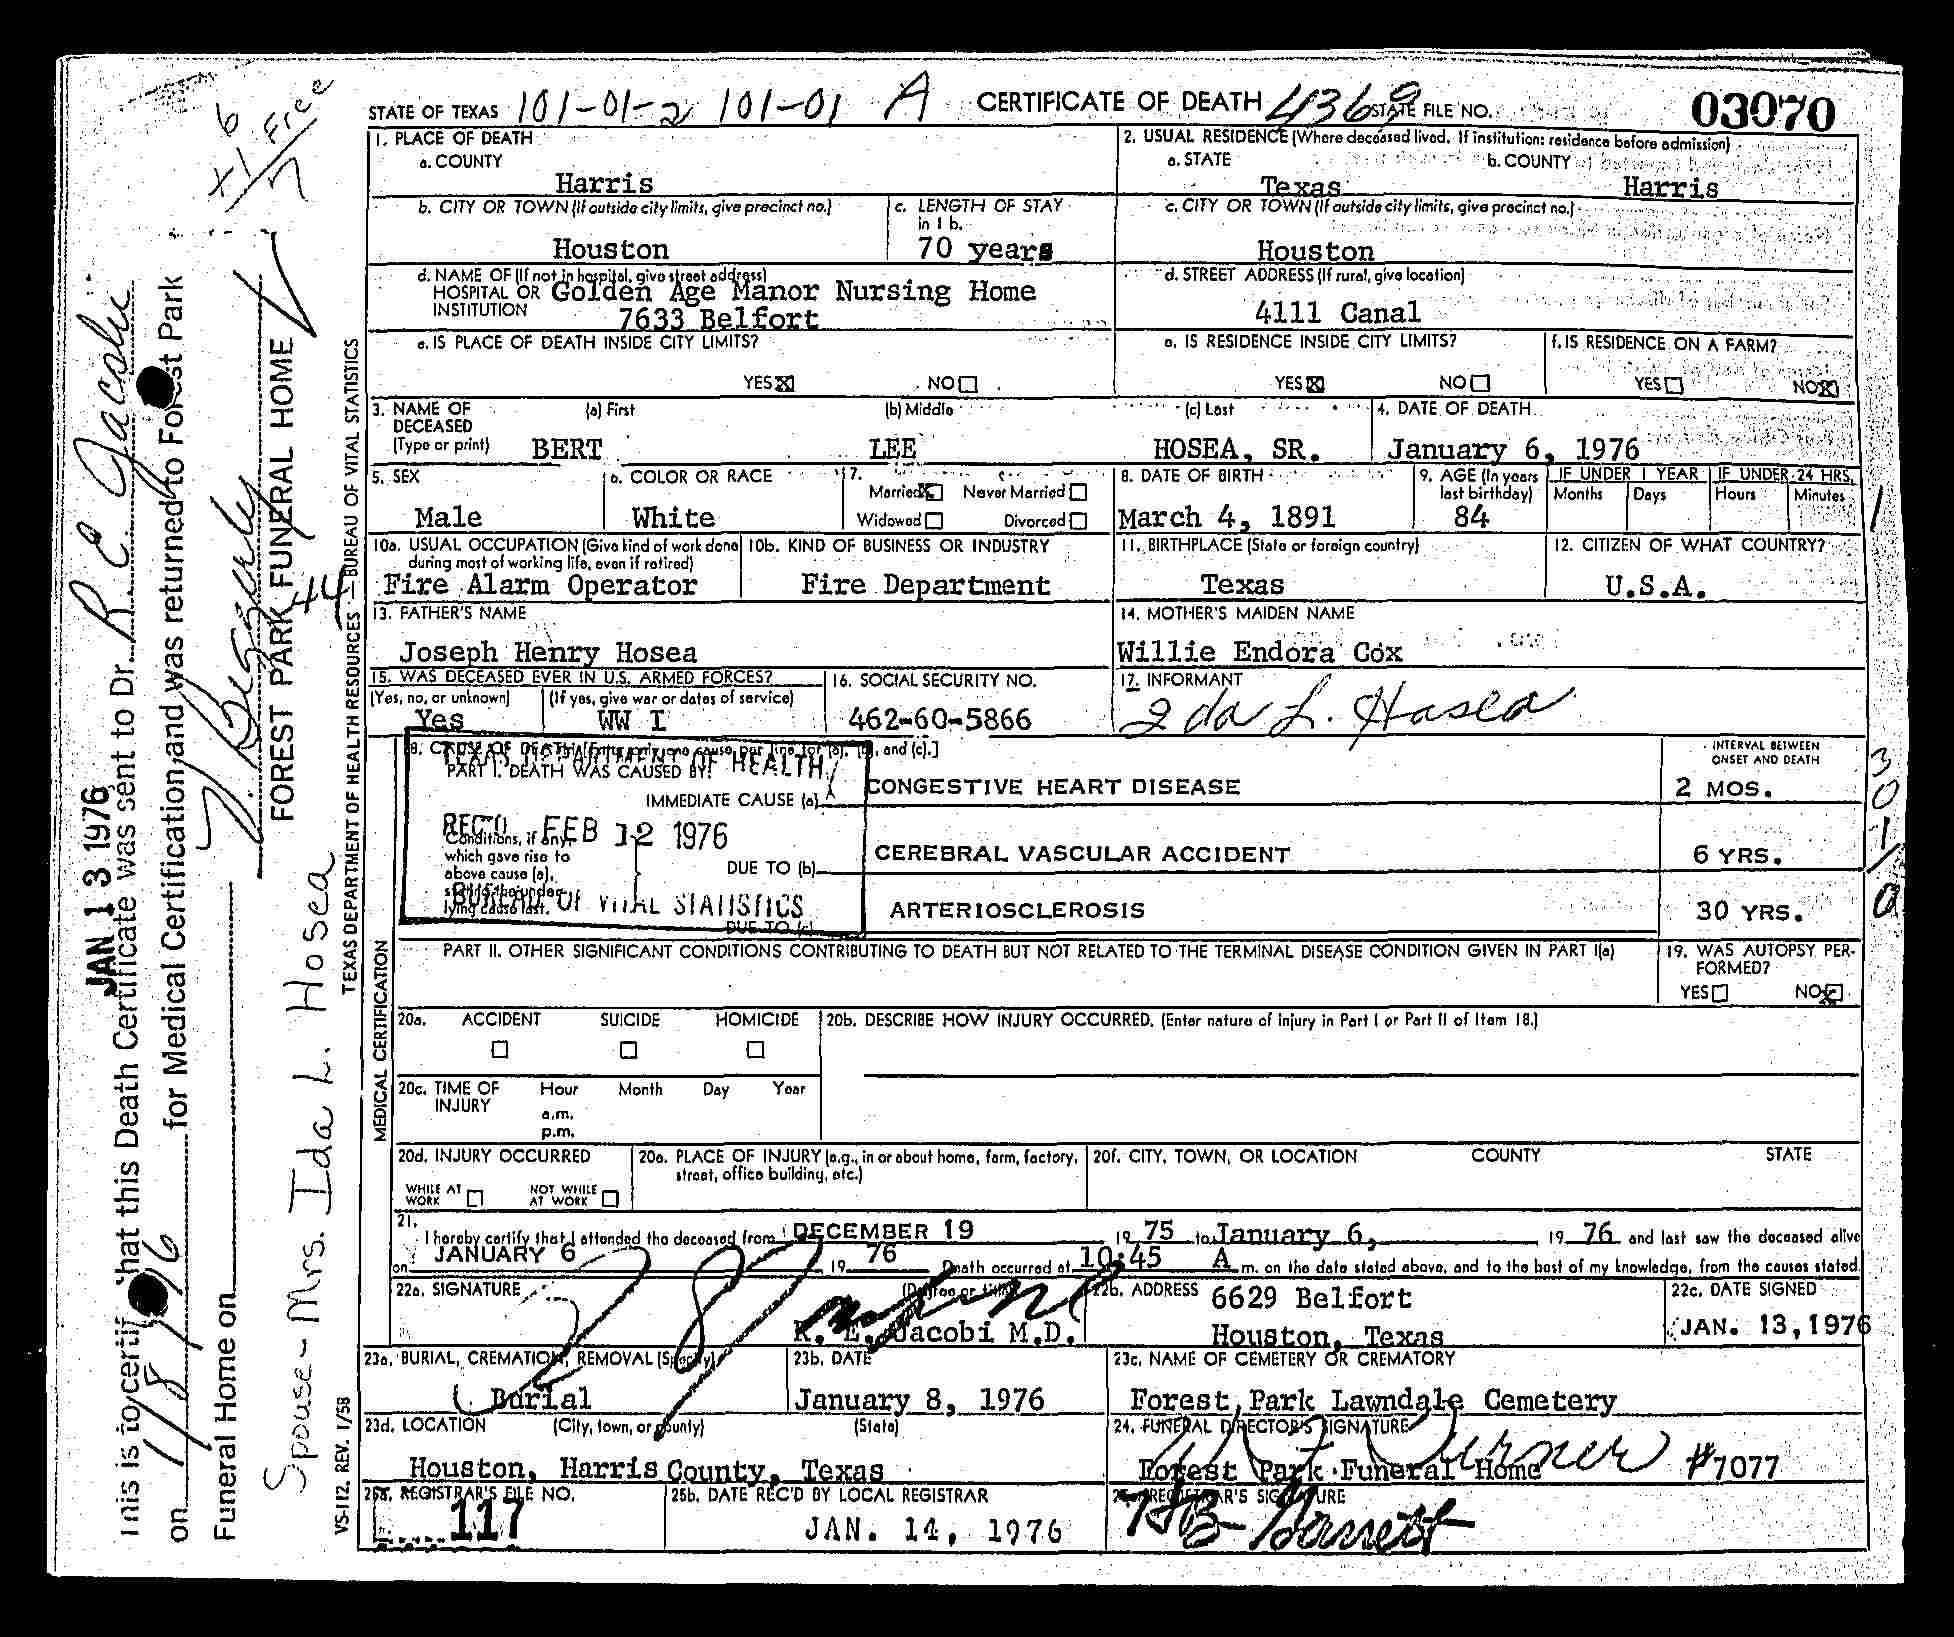 STATE OF TEXAS 101-01-2 101-01 A CERTIFICATE OF DEATH 4369 STATE FILE NO. 03070
1. PLACE OF DEATH
a. COUNTY
Harris
2. USUAL RESIDENCE (Where deceased lived. If institution: residence before admission)
a. STATE b. COUNTY
Texas Harris
b. CITY OR TOWN (If outside city limits, give precinct no.)
Houston
c. LENGTH OF STAY
in 1 b.
70 years
c. CITY OR TOWN (If outside city limits, give precinct no.)
Houston
d. NAME OF (If not in hospital, give street address)
HOSPITAL OR Golden Age Manor Nursing Home
INSTITUTION 7633 Belfort
d. STREET ADDRESS (If rural, give location)
4111 Canal
e. IS PLACE OF DEATH INSIDE CITY LIMITS?
YES NO
e. IS RESIDENCE INSIDE CITY LIMITS?
YES NO
f. IS RESIDENCE ON A FARM?
YES NO
3. NAME OF (a) First (b) Middle (c) Last
DECEASED
(Type or print) BERT LEE HOSEA, SR.
4. DATE OF DEATH
January 6, 1976
5. SEX
Male
6. COLOR OR RACE
White
7.
Married Never Married
Widowed Divorced
8. DATE OF BIRTH
March 4, 1891
9. AGE (In years
last birthday)
84
IF UNDER 1 YEAR IF UNDER 24 HRS.
Months Days Hours Minutes
10a. USUAL OCCUPATION (Give kind of work done
during most of working life, even if retired)
Fire Alarm Operator
10b. KIND OF BUSINESS OR INDUSTRY
Fire Department
11. BIRTHPLACE (State or foreign country)
Texas
12. CITIZEN OF WHAT COUNTRY?
U.S.A.
13. FATHER'S NAME
Joseph Henry Hosea
14. MOTHER'S MAIDEN NAME
Willie Endora Cox
15. WAS DECEASED EVER IN U.S. ARMED FORCES?
(Yes, no, or unknown) (If yes, give war or dates of service)
Yes WW I
16. SOCIAL SECURITY NO.
462-60-5866
17. INFORMANT
Ida L. Hosea
18. CAUSE OF DEATH [Enter only one cause per line for (a), (b), and (c).]
PART I. DEATH WAS CAUSED BY:
IMMEDIATE CAUSE (a) CONGESTIVE HEART DISEASE
INTERVAL BETWEEN
ONSET AND DEATH
2 MOS.
TEXAS DEPARTMENT OF HEALTH
REC'D FEB 12 1976
BUREAU OF VITAL STATISTICS
Conditions, if any,
which gave rise to
above cause (a),
stating the under-
lying cause last.
DUE TO (b) CEREBRAL VASCULAR ACCIDENT 6 YRS.
DUE TO (c) ARTERIOSCLEROSIS 30 YRS.
PART II. OTHER SIGNIFICANT CONDITIONS CONTRIBUTING TO DEATH BUT NOT RELATED TO THE TERMINAL DISEASE CONDITION GIVEN IN PART I(a)
19. WAS AUTOPSY PER-
FORMED?
YES NO
20a. ACCIDENT SUICIDE HOMICIDE
20b. DESCRIBE HOW INJURY OCCURRED. (Enter nature of injury in Part I or Part II of Item 18.)
20c. TIME OF Hour Month Day Year
INJURY a.m.
p.m.
20d. INJURY OCCURRED
WHILE AT WORK NOT WHILE AT WORK
20e. PLACE OF INJURY (e.g., in or about home, farm, factory,
street, office building, etc.)
20f. CITY, TOWN, OR LOCATION COUNTY STATE
21.
I hereby certify that I attended the deceased from DECEMBER 19 19 75 to January 6, 19 76 and last saw the deceased alive
on JANUARY 6 19 76 Death occurred at 10:45 A m. on the date stated above, and to the best of my knowledge, from the causes stated.
22a. SIGNATURE (Degree or title)
R. E. Jacobi M.D.
22b. ADDRESS 6629 Belfort
Houston, Texas
22c. DATE SIGNED
JAN. 13, 1976
23a. BURIAL, CREMATION, REMOVAL (Specify)
Burial
23b. DATE
January 8, 1976
23c. NAME OF CEMETERY OR CREMATORY
Forest Park Lawndale Cemetery
23d. LOCATION (City, town, or county) (State)
Houston, Harris County, Texas
24. FUNERAL DIRECTOR'S SIGNATURE
Turner #7077
Forest Park Funeral Home
25a. REGISTRAR'S FILE NO.
117
25b. DATE REC'D BY LOCAL REGISTRAR
JAN. 14, 1976
25c. REGISTRAR'S SIGNATURE
VS-112, REV. 1/58
TEXAS DEPARTMENT OF HEALTH RESOURCES — BUREAU OF VITAL STATISTICS
MEDICAL CERTIFICATION
JAN 13 1976
This is to certify that this Death Certificate was sent to Dr. R E Jacobi
on 1/8/76 for Medical Certification, and was returned to Forest Park
Funeral Home on
FOREST PARK FUNERAL HOME
44
Spouse - Mrs. Ida L. Hosea